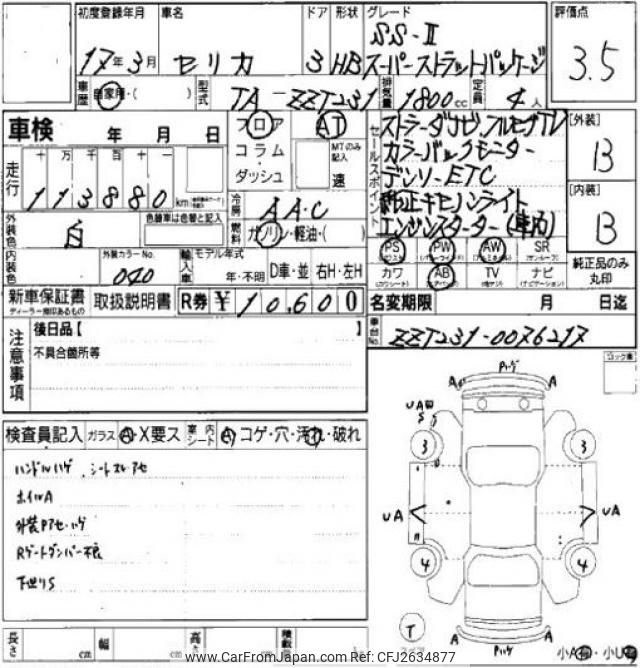 初度登録年月 車名 ドア 形状 グレード 評価点
17年3月 セリカ 3 HB SS-Ⅱ
スーパーストラットパッケージ
3.5
車歴 自家用・( ) 型式 TA-ZZT231 排気量 1800cc 定員 4人
車検 年 月 日
フロア AT
コラム
ダッシュ
MTのみ記入
速
セールスポイント
ストラーダナビ,フルセグTV
カラーバックモニター
デンソーETC
純正キセノンライト
エンジンスターター(車内)
[外装]
B
[内装]
B
走行 十万千百十一
113880 km
冷房 AAC
燃料 ガソリン・軽油・( )
外装色 白 色替車は色替と記入
内装色 外装カラーNo. 040
輸入車 モデル年式
年・不明 D車・並 右H・左H
PS PW AW SR
カワ AB TV ナビ
純正品のみ丸印
新車保証書 取扱説明書 R券 ¥10,600
ディーラー捺印あるもの
名変期限 月 日迄
車台No. ZZT231-0076217
注意事項
後日品【 】
不具合箇所等
検査員記入 ガラス A・X要ス 室内シート A コゲ・穴・汚れ・破れ
ハンドルハゲ シートスレアセ
ホイルA
外装Pアセ・ハゲ
Rゲートダンパー不良
下廻りS
A Pハゲ A
UA
S
3 3
UA UA
4 4
T
A Pハゲ A
長さ cm 幅 cm 高さ cm 積載量
www.CarFromJapan.com Ref: CFJ2634877